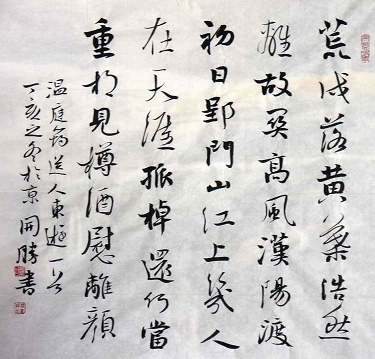 荒戍落黄葉浩然
離故關高風漢陽渡
初日郢門山江上幾人
在天涯孤棹還何當
重相見樽酒慰離顔
温庭筠送人東遊一首
丁亥之冬於京開勝書